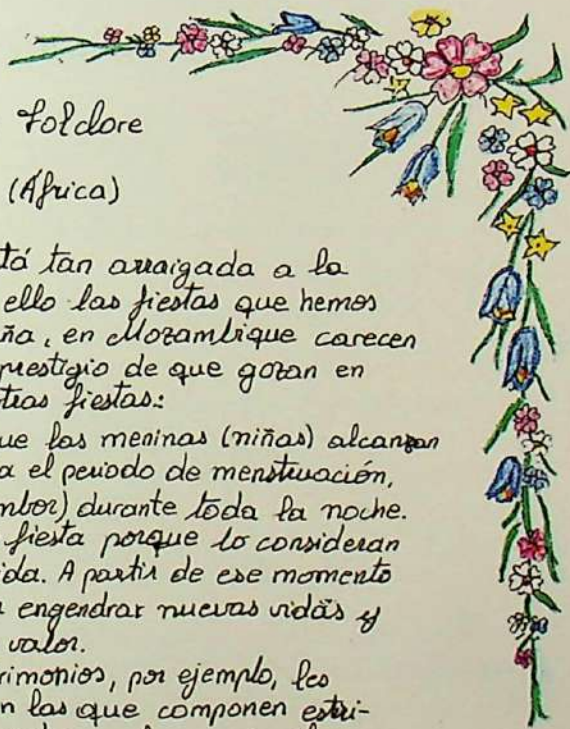 Folclore
(África)
tá tan arraigada a la
ello las fiestas que hemos
ña, en Mozambique carecen
prestigio de que gozan en
tras fiestas:
ue las meninas (niñas) alcanzan
a el periodo de menstruación,
mbor) durante toda la noche.
fiesta porque lo consideran
ida. A partir de ese momento
engendrar nuevas vidas y
valor.
rimonios, por ejemplo, les
n las que componen estri-